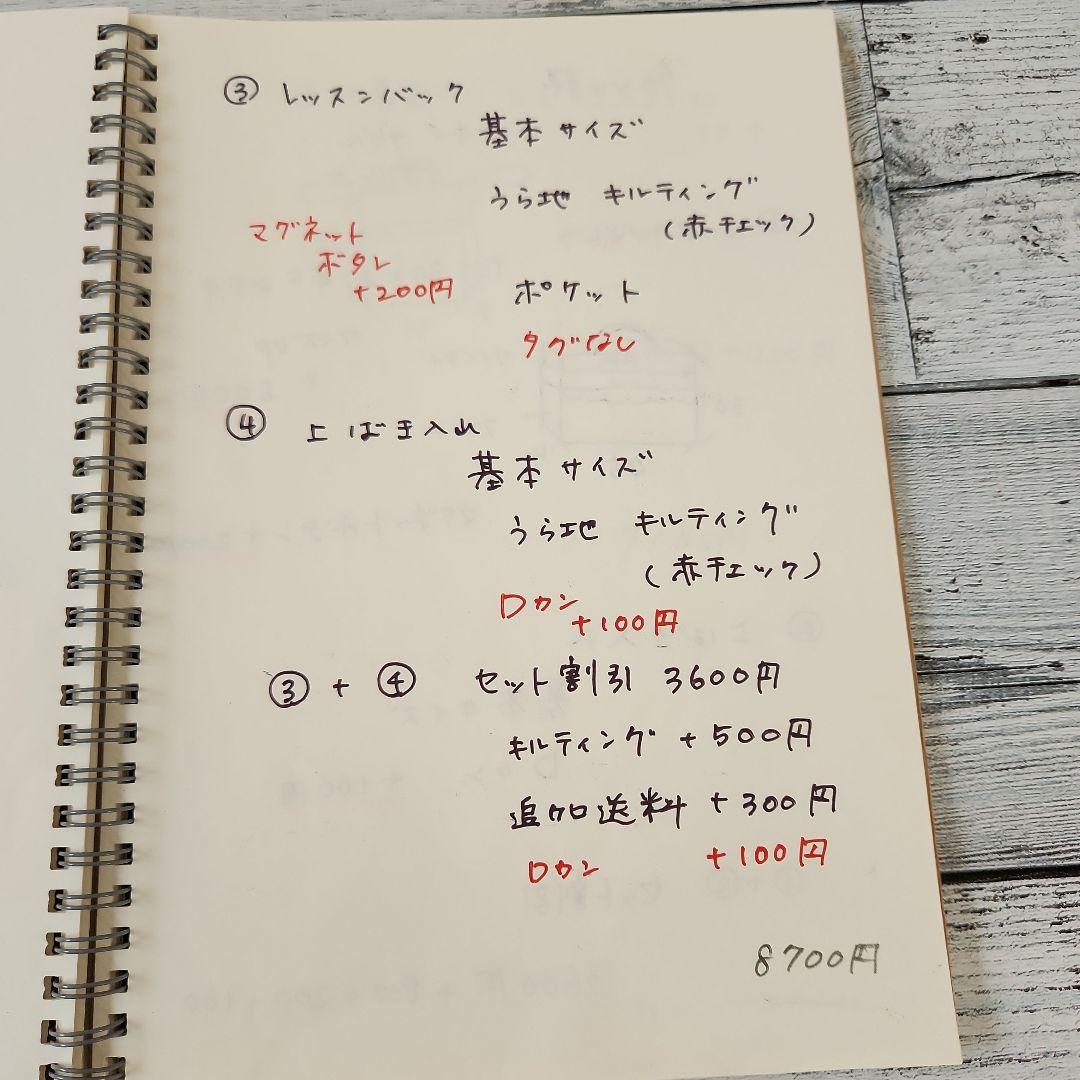 ③ レッスンバック
基本サイズ
うら地 キルティング
(赤チェック)
マグネット
ボタン
+200円
ポケット
タグなし
④ 上ばき入れ
基本サイズ
うら地 キルティング
(赤チェック)
Dカン
+100円
③ + ④ セット割引 3600円
キルティング +500円
追加送料 +300円
Dカン +100円
8700円